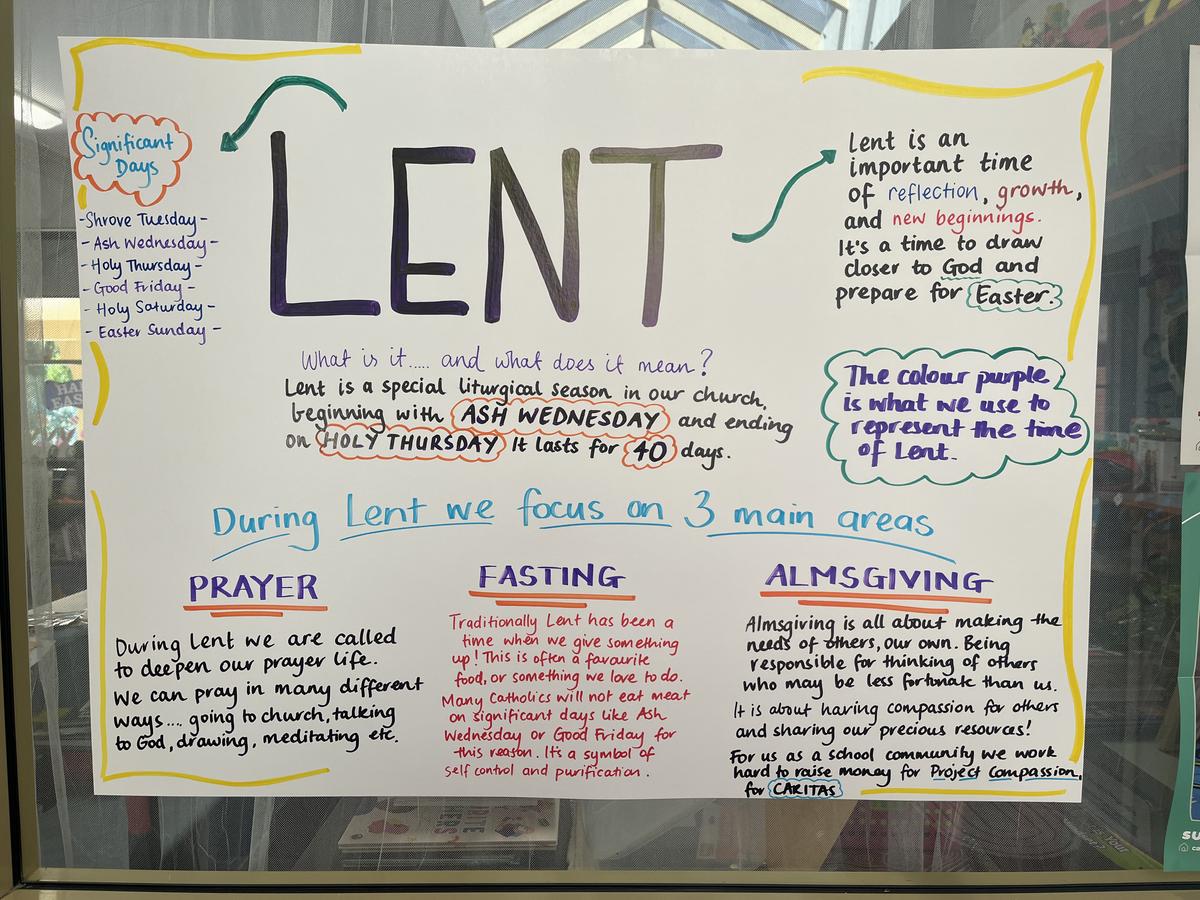 LENT
Significant
Days
-Shrove Tuesday-
- Ash Wednesday-
-Holy Thursday-
-Good Friday-
- Holy Saturday-
- Easter Sunday -
Lent is an
important time
of reflection, growth,
and new beginnings.
It's a time to draw
closer to God and
prepare for Easter.
What is it..... and what does it mean?
Lent is a special liturgical season in our church,
beginning with ASH WEDNESDAY and ending
on HOLY THURSDAY It lasts for 40 days.
The colour purple
is what we use to
represent the time
of Lent.
During Lent we focus on 3 main areas
PRAYER
During Lent we are called
to deepen our prayer life.
We can pray in many different
ways.... going to church, talking
to God, drawing, meditating etc.
FASTING
Traditionally Lent has been a
time when we give something
up! This is often a favourite
food, or something we love to do.
Many Catholics will not eat meat
on significant days like Ash
Wednesday or Good Friday for
this reason. It's a symbol of
self control and purification.
ALMSGIVING
Almsgiving is all about making the
needs of others, our own. Being
responsible for thinking of others
who may be less fortunate than us.
It is about having compassion for others
and sharing our precious resources!
For us as a school community we work
hard to raise money for Project Compassion,
for CARITAS